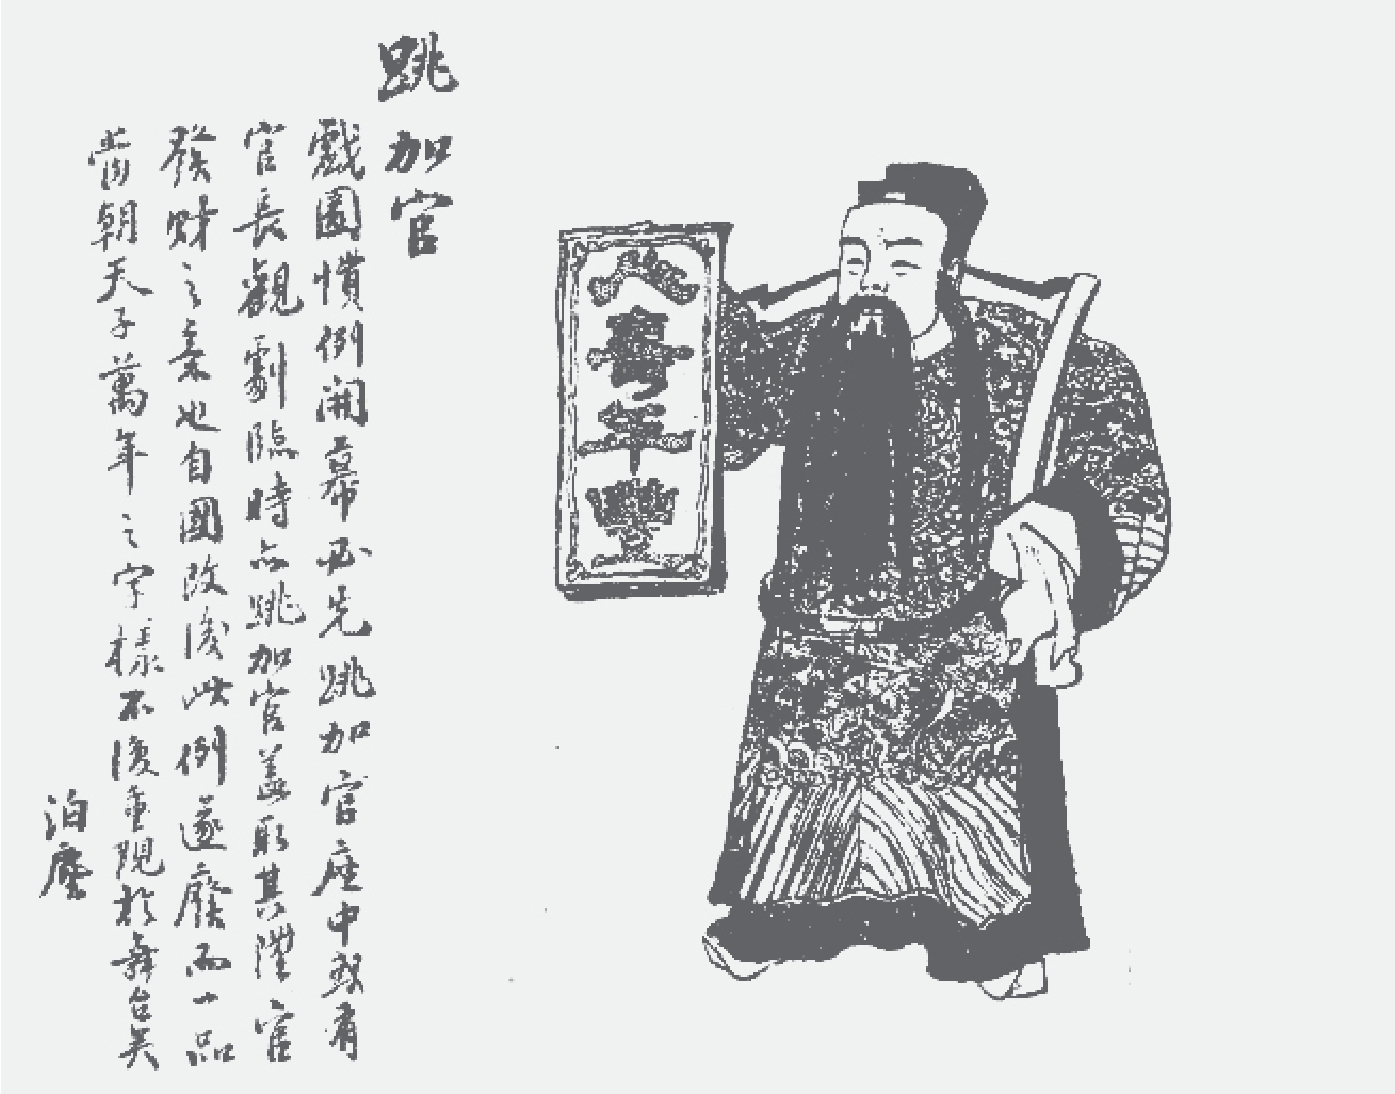 跳加官
戲園慣例開幕必先跳加官座中或有
官長觀劇臨時亦跳加官蓋取其陞官
發財之意也自國改後此例遂廢而一品
當朝天子萬年之字樣不復重現於舞台矣
泊塵
人壽年豐